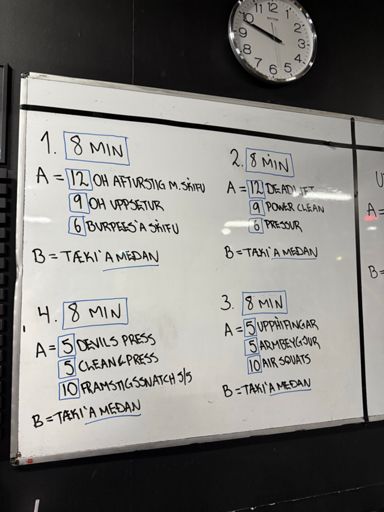 1. 8 MIN
A = 12 OH AFTURSTIG M. SKÍFU
9 OH UPPSETUR
6 BURPEES Á SKÍFU
B = TÆKI Á MEDAN
2. 8 MIN
A = 12 DEADLIFT
9 POWER CLEAN
6 PRESSUR
B = TÆKI Á MEDAN
3. 8 MIN
A = 5 UPPHÍFINGAR
5 ARMBEYGJUR
10 AIR SQUATS
B = TÆKI Á MEDAN
4. 8 MIN
A = 5 DEVILS PRESS
5 CLEAN & PRESS
10 FRAMSTIGSSNATCH 5/5
B = TÆKI Á MEDAN
A =
B =
12 1 2 3 4 5 6 7 8 9 10 11